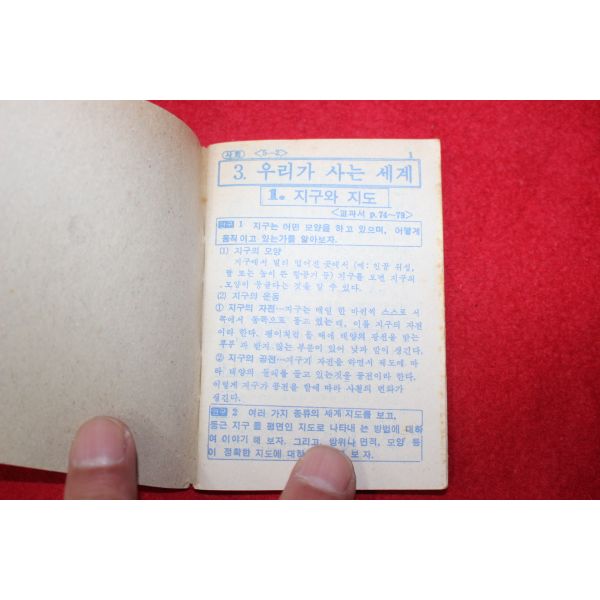 사회 <5-2> 1
3. 우리가 사는 세계
1. 지구와 지도
<교과서 p.74~79>
연구 1 지구는 어떤 모양을 하고 있으며, 어떻게
움직이고 있는가를 알아보자.
(1) 지구의 모양
지구에서 멀리 떨어진 곳에서 (예: 인공 위성,
달 또는 높이 뜬 비행기 등) 지구를 보면 지구의
모양이 둥글다는 것을 알 수 있다.
(2) 지구의 운동
① 지구의 자전…지구는 매일 한 바퀴씩 스스로 서
쪽에서 동쪽으로 돌고 있는데, 이를 지구의 자전
이라 한다. 팽이처럼 돌 때에 태양의 광선을 받는
부분과 받지 않는 부분이 있어 낮과 밤이 생긴다.
② 지구의 공전…지구가 자전을 하면서 궤도에 따
라 태양의 둘레를 돌고 있는것을 공전이라 한다.
이렇게 지구가 공전을 함에 따라 사철의 변화가
생긴다.
연구 2 여러 가지 종류의 세계 지도를 보고,
둥근 지구를 평면인 지도로 나타내는 방법에 대하
여 이야기 해 보자. 그리고, 방위나 면적, 모양 등
이 정확한 지도에 대하 보자.